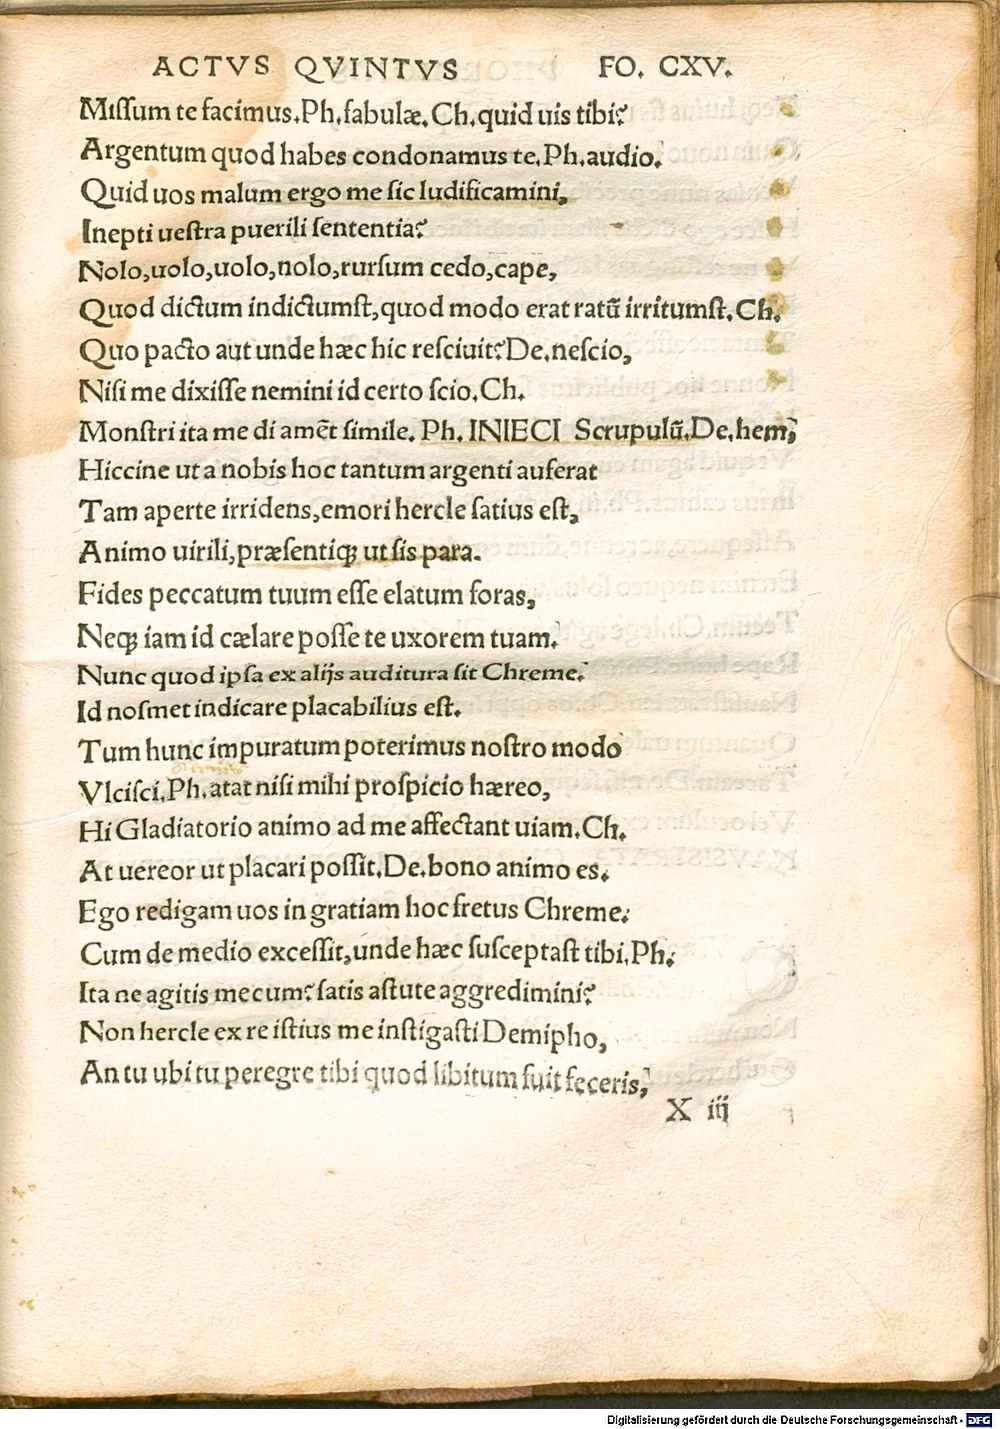 ACTVS QVINTVS FO. CXV.
Missum te facimus. Ph. fabulæ. Ch. quid uis tibi?
Argentum quod habes condonamus te. Ph. audio.
Quid uos malum ergo me sic ludificamini,
Inepti uestra puerili sententia?
Nolo, uolo, uolo, nolo, rursum cedo, cape,
Quod dictum indictumst, quod modo erat ratũ irritumst. Ch.
Quo pacto aut unde hæc hic resciuit? De. nescio,
Nisi me dixisse nemini id certo scio. Ch.
Monstri ita me di amẽt simile. Ph. INIECI Scrupulũ. De. hem,
Hiccine ut a nobis hoc tantum argenti auferat
Tam aperte irridens, emori hercle satius est,
Animo uirili, præsentiqꝫ ut sis para.
Fides peccatum tuum esse elatum foras,
Neqꝫ iam id cælare posse te uxorem tuam.
Nunc quod ipsa ex alijs auditura sit Chreme.
Id nosmet indicare placabilius est.
Tum hunc impuratum poterimus nostro modo
Vlcisci. Ph. atat nisi mihi prospicio hæreo,
Hi Gladiatorio animo ad me affectant uiam. Ch.
At uereor ut placari possit. De. bono animo es.
Ego redigam uos in gratiam hoc fretus Chreme.
Cum de medio excessit, unde hæc susceptast tibi. Ph.
Ita ne agitis mecum? satis astute aggredimini?
Non hercle ex re istius me instigasti Demipho,
An tu ubi tu peregre tibi quod libitum fuit feceris,
X iij
Digitalisierung gefördert durch die Deutsche Forschungsgemeinschaft - DFG